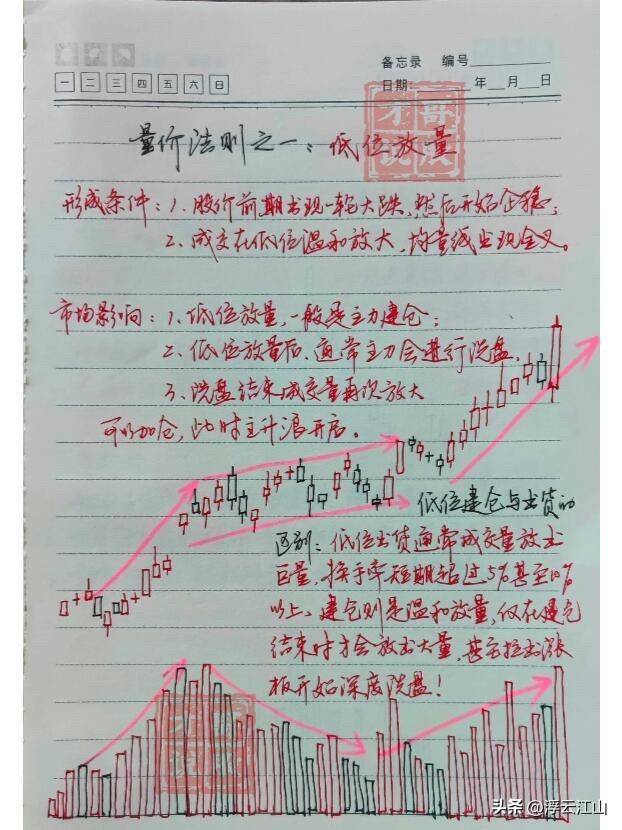 备忘录 编号
一 二 三 四 五 六 日
日期: 年 月 日
才哥
说股
量价法则之一：低位放量
形成条件：1、股价前期出现一轮大跌，然后开始企稳；
2、成交在低位温和放大，均量线出现金叉。
市场影响：1、低位放量，一般是主力建仓；
2、低位放量后，通常主力会进行洗盘，
3、洗盘结束成交量再次放大
可以加仓，此时主升浪开启。
低位建仓与出货的
区别：低位出货通常成交量放出
巨量，换手率短期超过5%甚至10%
以上、建仓则是温和放量，仅在建仓
结束时才会放出大量，甚至拉出涨
板开始深度洗盘！
才哥
说股
头条 @浮云江山